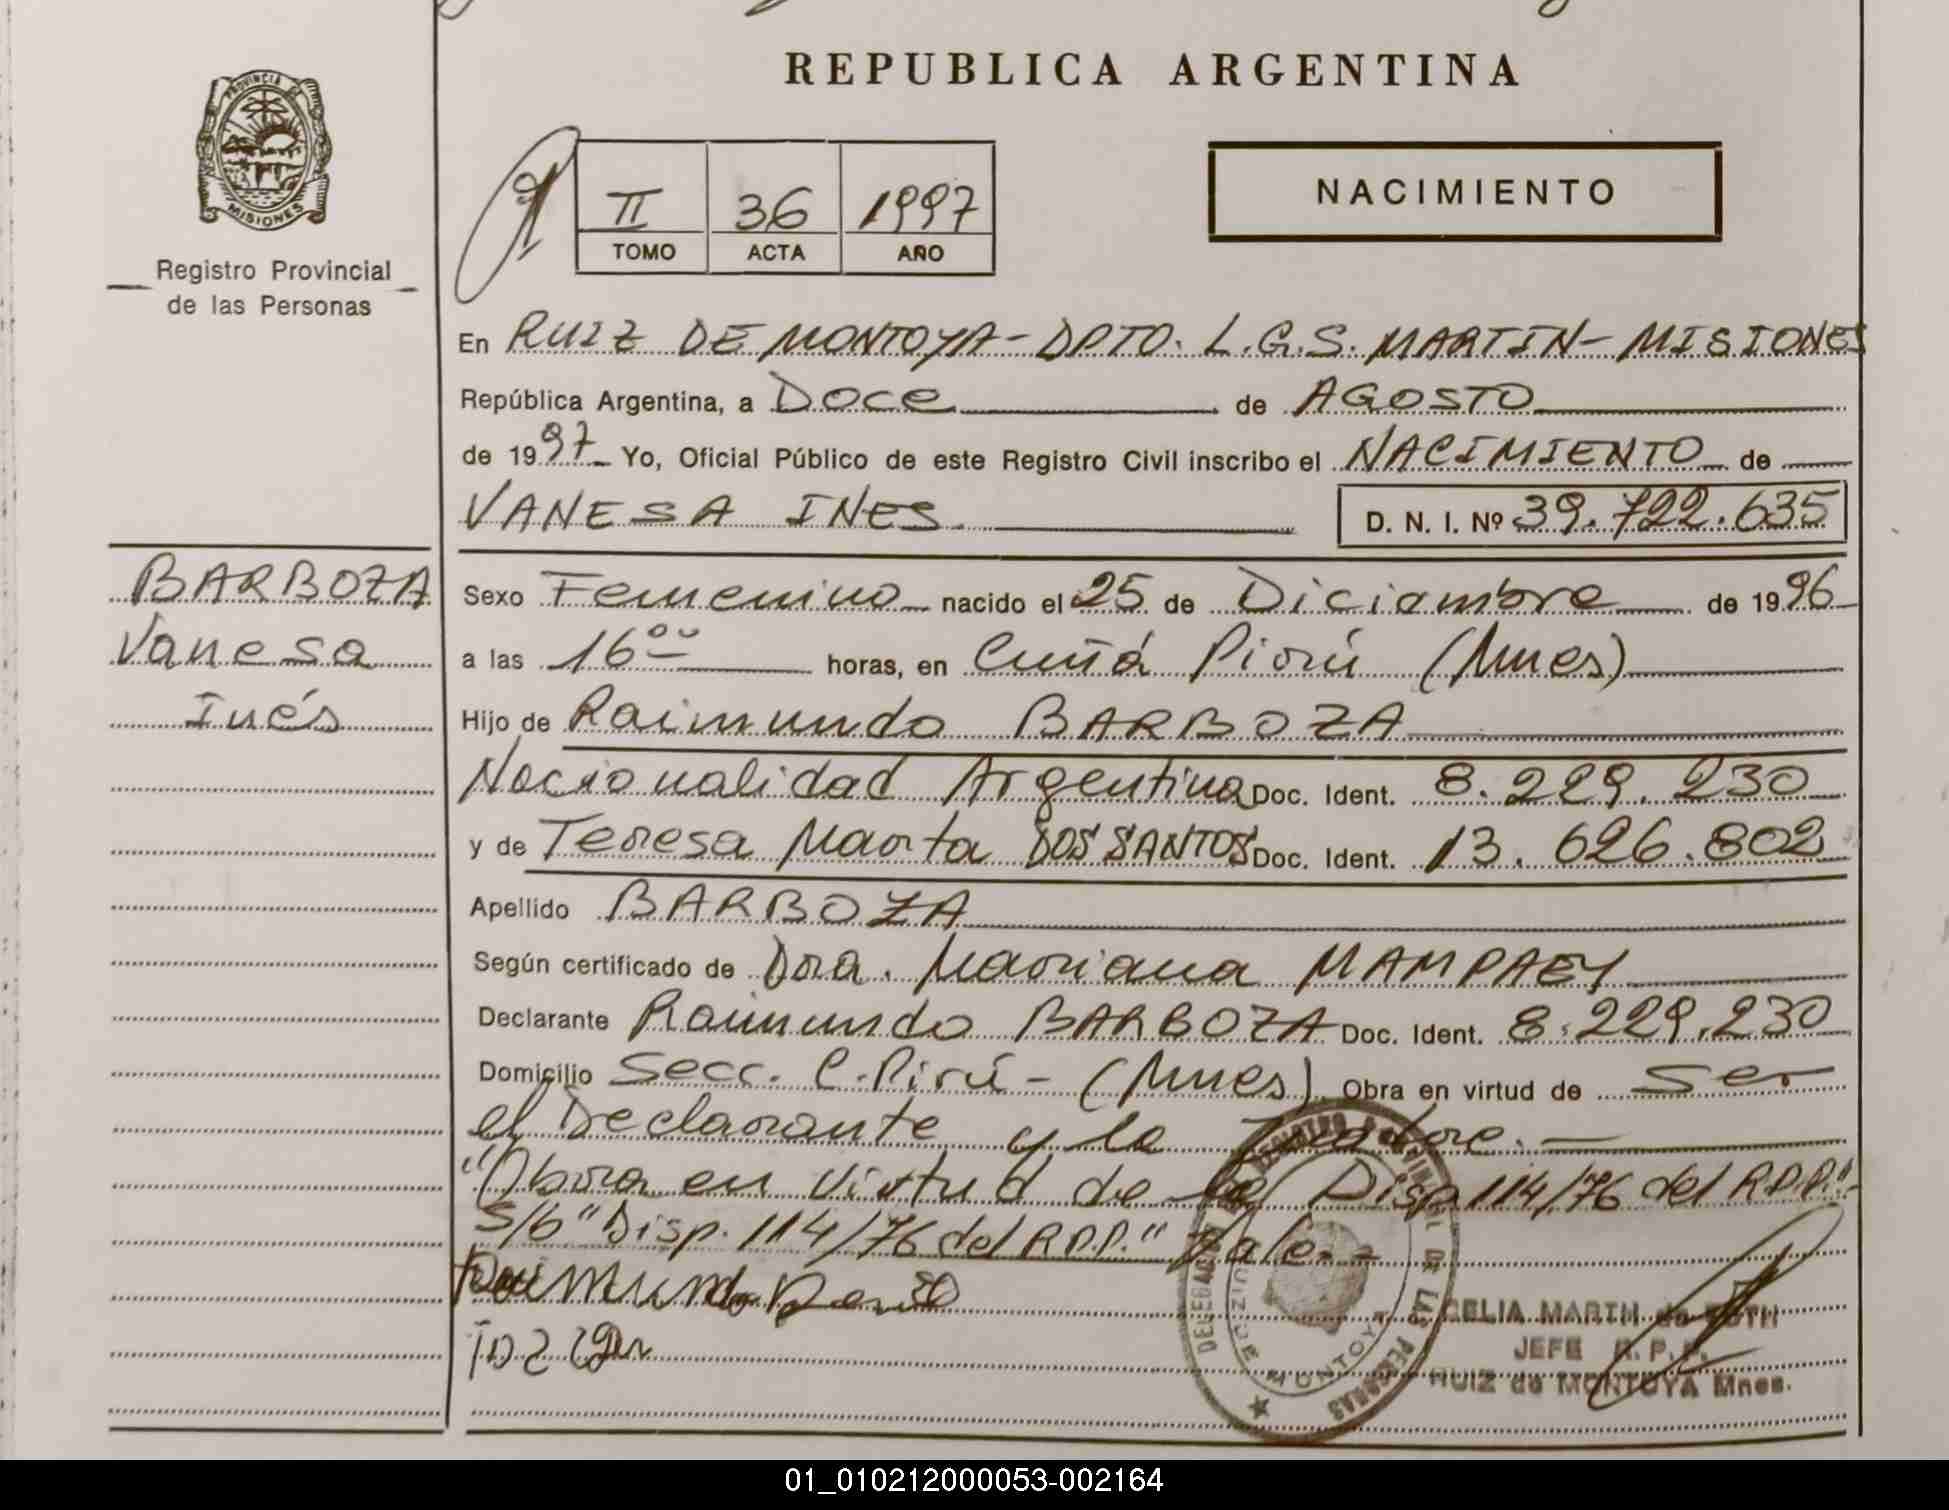 REPUBLICA ARGENTINA
PROVINCIA DE
MISIONES
Registro Provincial
de las Personas
II 36 1997
TOMO ACTA AÑO
NACIMIENTO
En RUIZ DE MONTOYA - DPTO. L.G.S. MARTIN - MISIONES
República Argentina, a DOCE de AGOSTO
de 1997 Yo, Oficial Público de este Registro Civil inscribo el NACIMIENTO de
VANESA INES. D. N. I. Nº 39.722.635
BARBOZA
Vanesa
Inés
Sexo Femenino nacido el 25 de Diciembre de 1996
a las 16 oo horas, en Cuñá Pirú (Mnes)
Hijo de Raimundo BARBOZA
Nacionalidad Argentina Doc. Ident. 8.229.230
y de Teresa Marta DOS SANTOS Doc. Ident. 13.626.802
Apellido BARBOZA
Según certificado de Dra. Mariana MAMPAEY
Declarante Raimundo BARBOZA Doc. Ident. 8.229.230
Domicilio Secc. C. Pirú - (Mnes) Obra en virtud de ser
el Declarante y la
"Obra en virtud de la Disp 114/76 del R.P.P."
S/b "Disp. 114/76 del R.P.P." Vale
Raimundo
DELEGACION REGISTRO PROVINCIAL DE LAS PERSONAS
RUIZ DE MONTOYA
CELIA MARTH de ROTH
JEFE R.P.P.
RUIZ de MONTOYA Mnes.
01_010212000053-002164